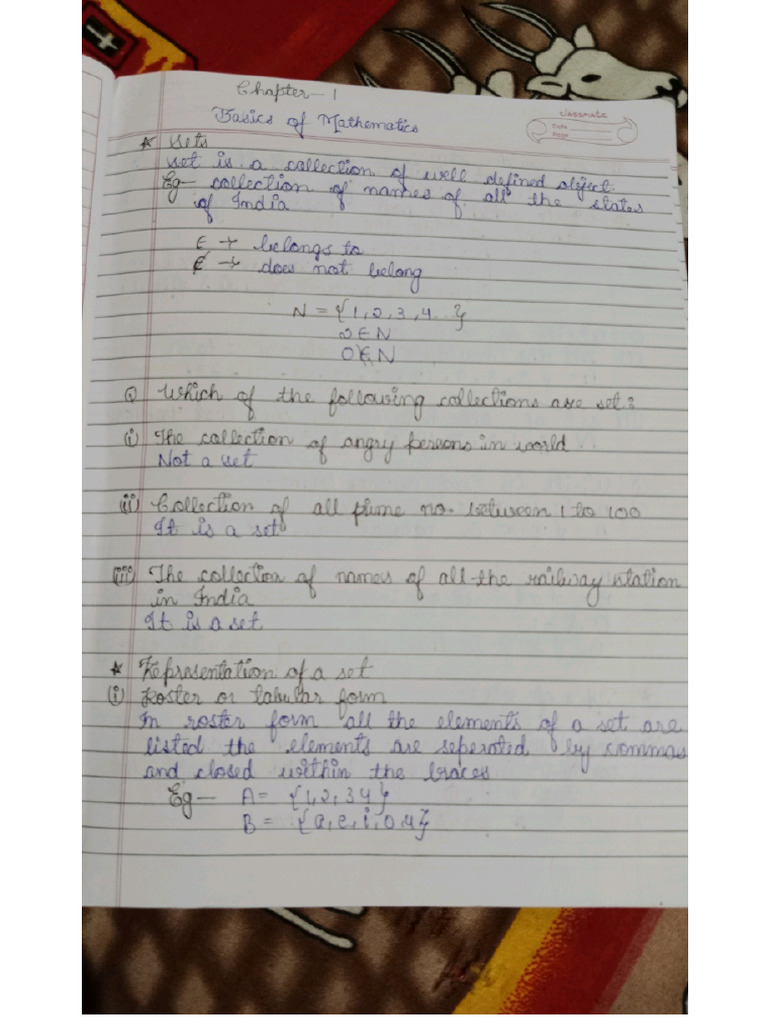 Chapter - 1
Basics of Mathematics
classmate
Date
Page
* Sets
Set is a collection of well defined object.
Eg - collection of names of all the states
of India
∈ → belongs to
∉ → does not belong
N = {1, 2, 3, 4 .. }
2 ∈ N
0 ∉ N
Q Which of the following collections are set?
(i) The collection of angry persons in world
Not a set
(ii) Collection of all prime no. between 1 to 100
It is a set
(iii) The collection of names of all the railway station
in India
It is a set
* Representation of a set
(i) Roster or tabular form
In roster form all the elements of a set are
listed the elements are seperated by commas
and closed within the braces
Eg - A = {1, 2, 3 4}
B = {a, e, i, o, u}